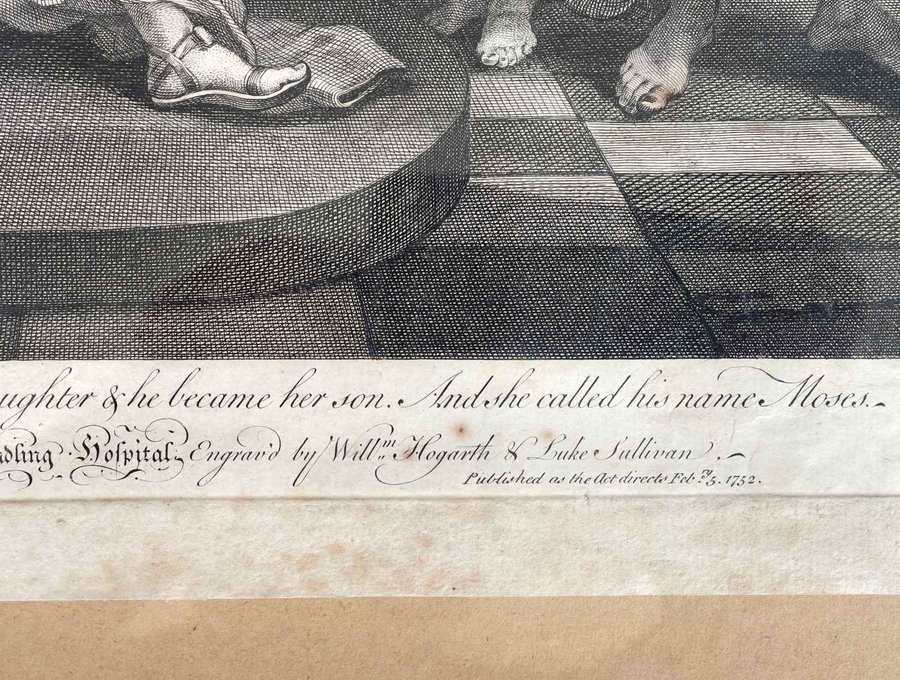 ughter & he became her son. And she called his name Moses.
dling Hospital; Engrav'd by Willm. Hogarth & Luke Sullivan.
Published as the Act directs Feb.ry 5. 1752.